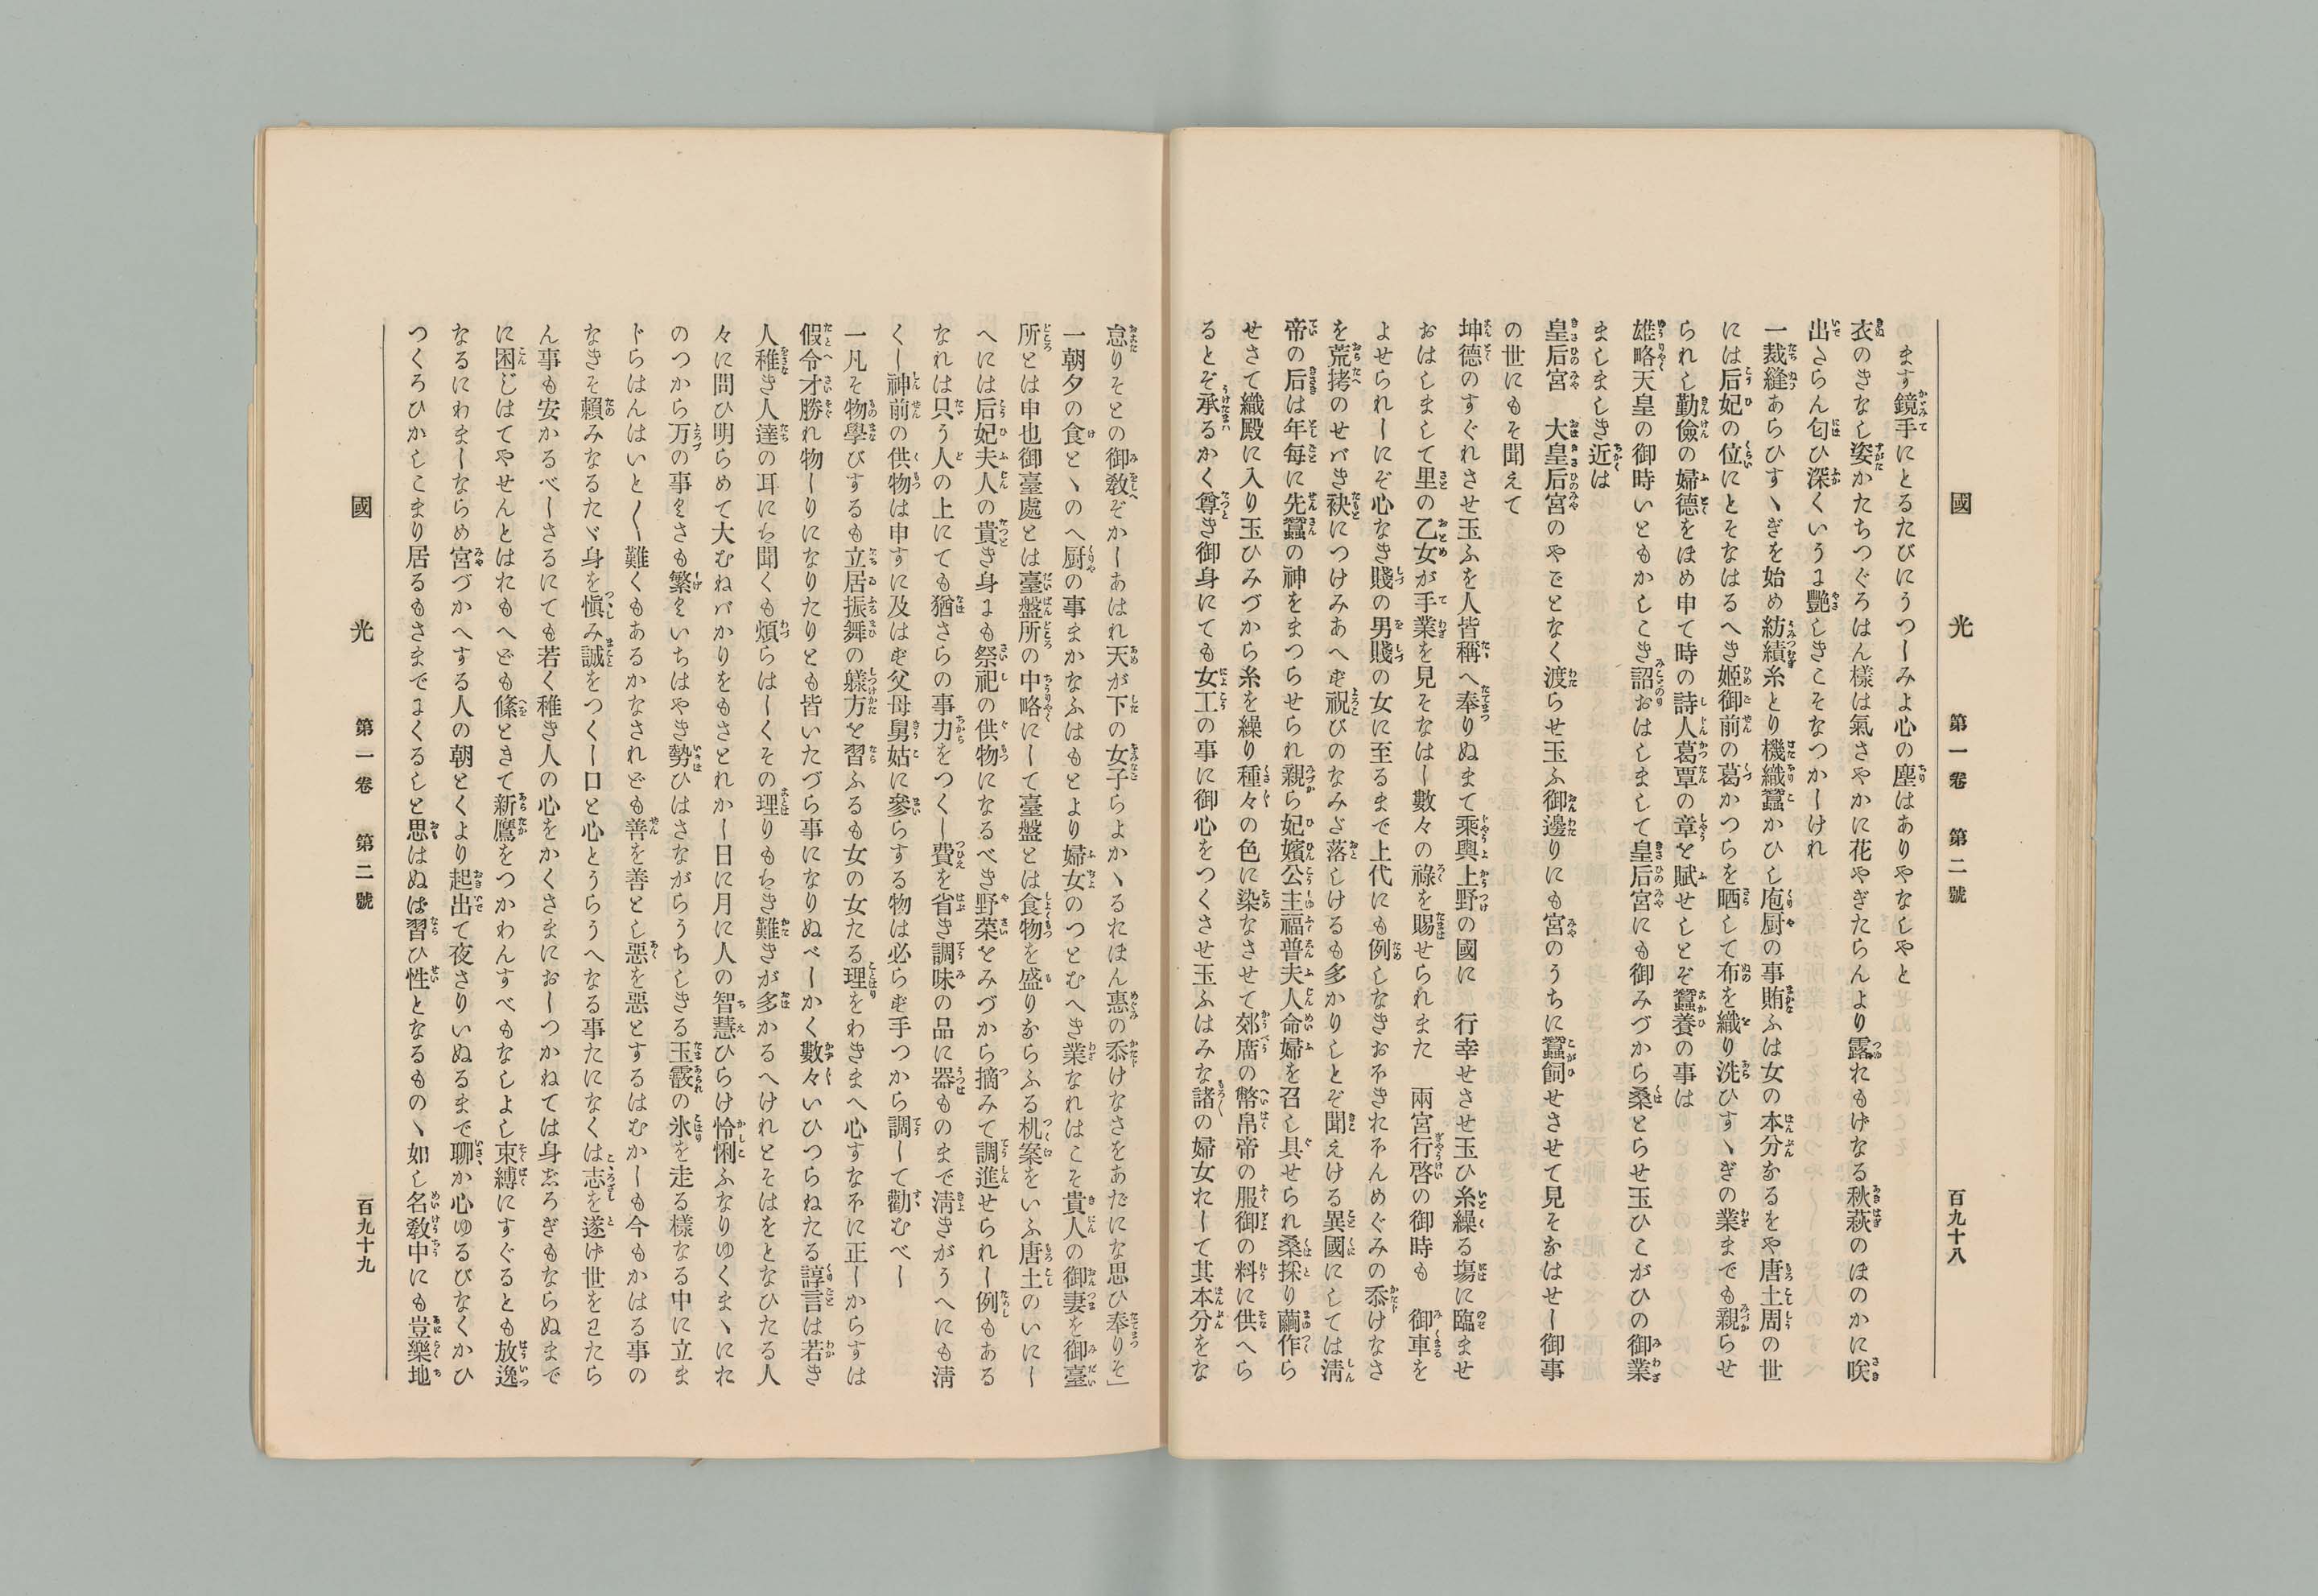 國光 第一卷 第二號 百九十八
ます鏡手にとるたびにうつしみよ心の塵はありやなしやと
衣のきなし姿かたちつぐろはん樣は氣さやかに花やぎたらんより露おもげなる秋萩のほのかに咲
出さらん匂ひ深くいうに艷しきこそなつかしけれ
一裁縫あらひすゝぎを始め紡績糸とり機織蠶かひし庖厨の事賄ふは女の本分なるをや唐土周の世
には后妃の位にとそなはるへき姬御前の葛かつらを晒して布を織り洗ひすゝぎの業までも親らせ
られし勤儉の婦德をほめ申て時の詩人葛覃の章を賦せしとぞ蠶養の事は
雄略天皇の御時いともかしこき詔おはしまして皇后宮にも御みづから桑とらせ玉ひこがひの御業
ましましき近は
皇后宮 大皇后宮のやことなく渡らせ玉ふ御邊りにも宮のうちに蠶飼せさせて見そなはせし御事
の世にもそ聞えて
坤德のすぐれさせ玉ふを人皆稱へ奉りぬまて乘輿上野の國に 行幸せさせ玉ひ糸繰る塲に臨ませ
おはしまして里の乙女が手業を見そなはし數々の祿を賜せられまた 兩宮行啓の御時も 御車を
よせられしにぞ心なき賤の男賤の女に至るまで上代にも例しなきおほきおほんめぐみの忝けなさ
を荒拷のせバき袂につけみあへず祝びのなみだ落しけるも多かりしとぞ聞えける異國にしては淸
帝の后は年每に先蠶の神をまつらせられ親ら妃嬪公主福普夫人命婦を召し具せられ桑採り繭作ら
せさて織殿に入り玉ひみづから糸を繰り種々の色に染なさせて郊廟の幣帛帝の服御の料に供へら
るとぞ承るかく尊き御身にても女工の事に御心をつくさせ玉ふはみな諸の婦女おして其本分をな
怠りそとの御敎ぞかしあはれ天が下の女子らよかゝるおほん惠の忝けなさをあだにな思ひ奉りそ」
一朝夕の食とゝのへ厨の事まかなふはもとより婦女のつとむへき業なれはこそ貴人の御妻を御臺
所とは申也御臺處とは臺盤所の中略にして臺盤とは食物を盛りならふる机案をいふ唐土のいにし
へには后妃夫人の貴き身にも祭祀の供物になるべき野菜をみづから摘みて調進せられし例もある
なれは只う人の上にても猶さらの事力をつくし費を省き調味の品に器ものまで淸きがうへにも淸
くし神前の供物は申すに及はず父母舅姑に參らする物は必らず手つから調して勸むべし
一凡そ物學びするも立居振舞の躾方を習ふるも女の女たる理をわきまへ心すなほに正しからすは
假令才勝れ物しりになりたりとも皆いたづら事になりぬべしかく數々いひつらねたる諄言は若き
人稚き人達の耳にち聞くも煩らはしくその理りもちき難きが多かるへけれとそはをとなひたる人
々に問ひ明らめて大むねバかりをもさとれかし日に月に人の智慧ひらけ怜悧ふなりゆくまゝにお
のつから万の事をさも繁をいちはやき勢ひはさながらうちしきる玉霰の氷を走る樣なる中に立ま
ドらはんはいと〱難くもあるかなされども善を善とし惡を惡とするはむかしも今もかはる事の
なきそ賴みなるたゞ身を愼み誠をつくし口と心とうらうへなる事たになくは志を遂げ世をわたら
ん事も安かるべしさるにても若く稚き人の心をかくさまにおしつかねては身じろぎもならぬまで
に困じはてやせんとはおもへども絛ときて新鷹をつかわんすべもなしよし束縛にすぐるとも放逸
なるにわましならめ宮づかへする人の朝とくより起出て夜さりいぬるまで聊か心ゆるびなくかひ
つくろひかしこまり居るもさまでにくるしと思はぬは習ひ性となるものゝ如し名敎中にも豈樂地
國光 第一卷 第二號 百九十九